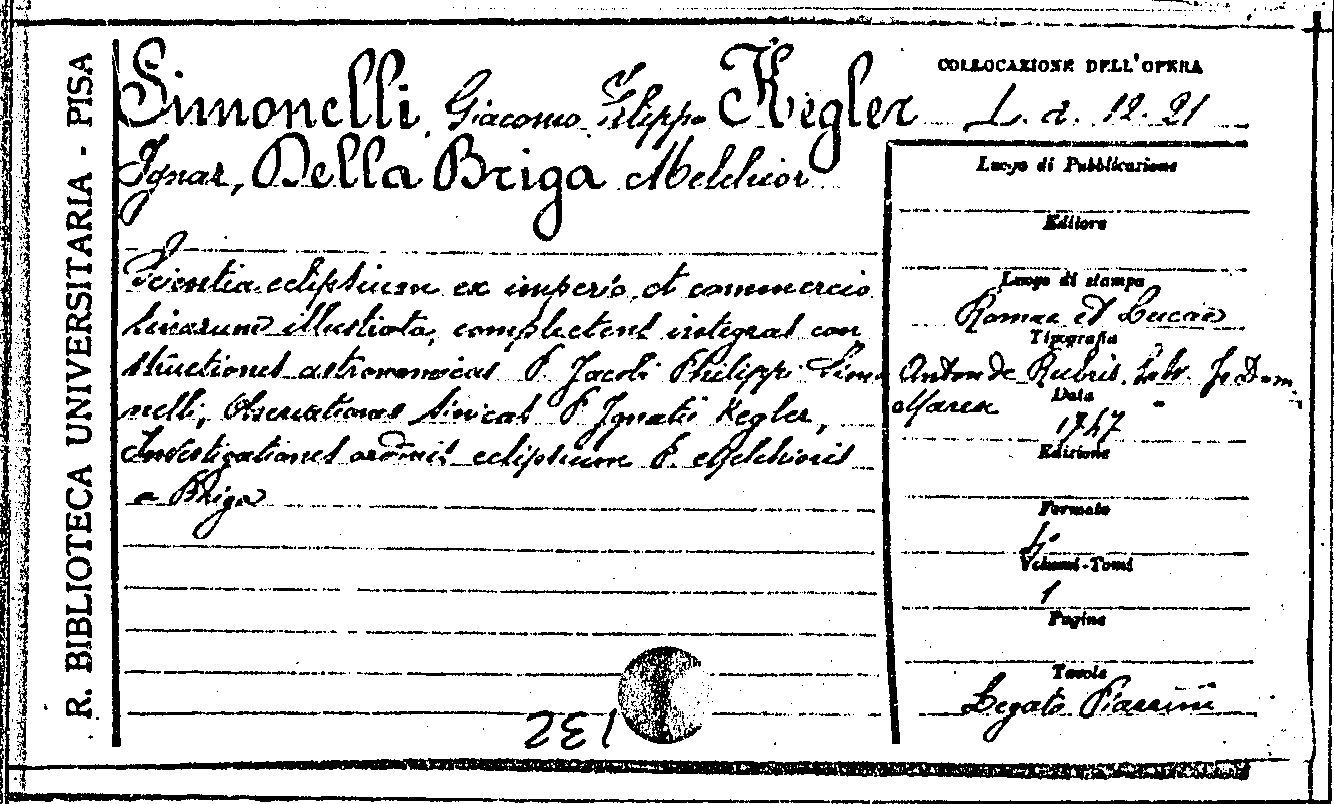 R. BIBLIOTECA UNIVERSITARIA - PISA
Simonelli, Giacomo Filippo Kegler
Ignaz, Della Briga Melchior
Scientia eclipsium ex imperio et commercio
Sinarum illustrata, complectens integras con
structiones astronomicas P. Jacobi Philippi Simo
nelli, Observationes Sinicas P. Ignatii Kegler,
Investigationes ordinis eclipsium P. Melchioris
a Briga
COLLOCAZIONE DELL'OPERA
L. d. 12. 21
Luogo di Pubblicazione
Editore
Luogo di stampa
Romae et Lucae
Tipografia
Anton de Rubeis, Salv. Jo Dom.
Maresc
Data
1747
Edizione
Formato
4°
Volumi-Tomi
1
Pagine
Tavole
Legato Piazzini
132